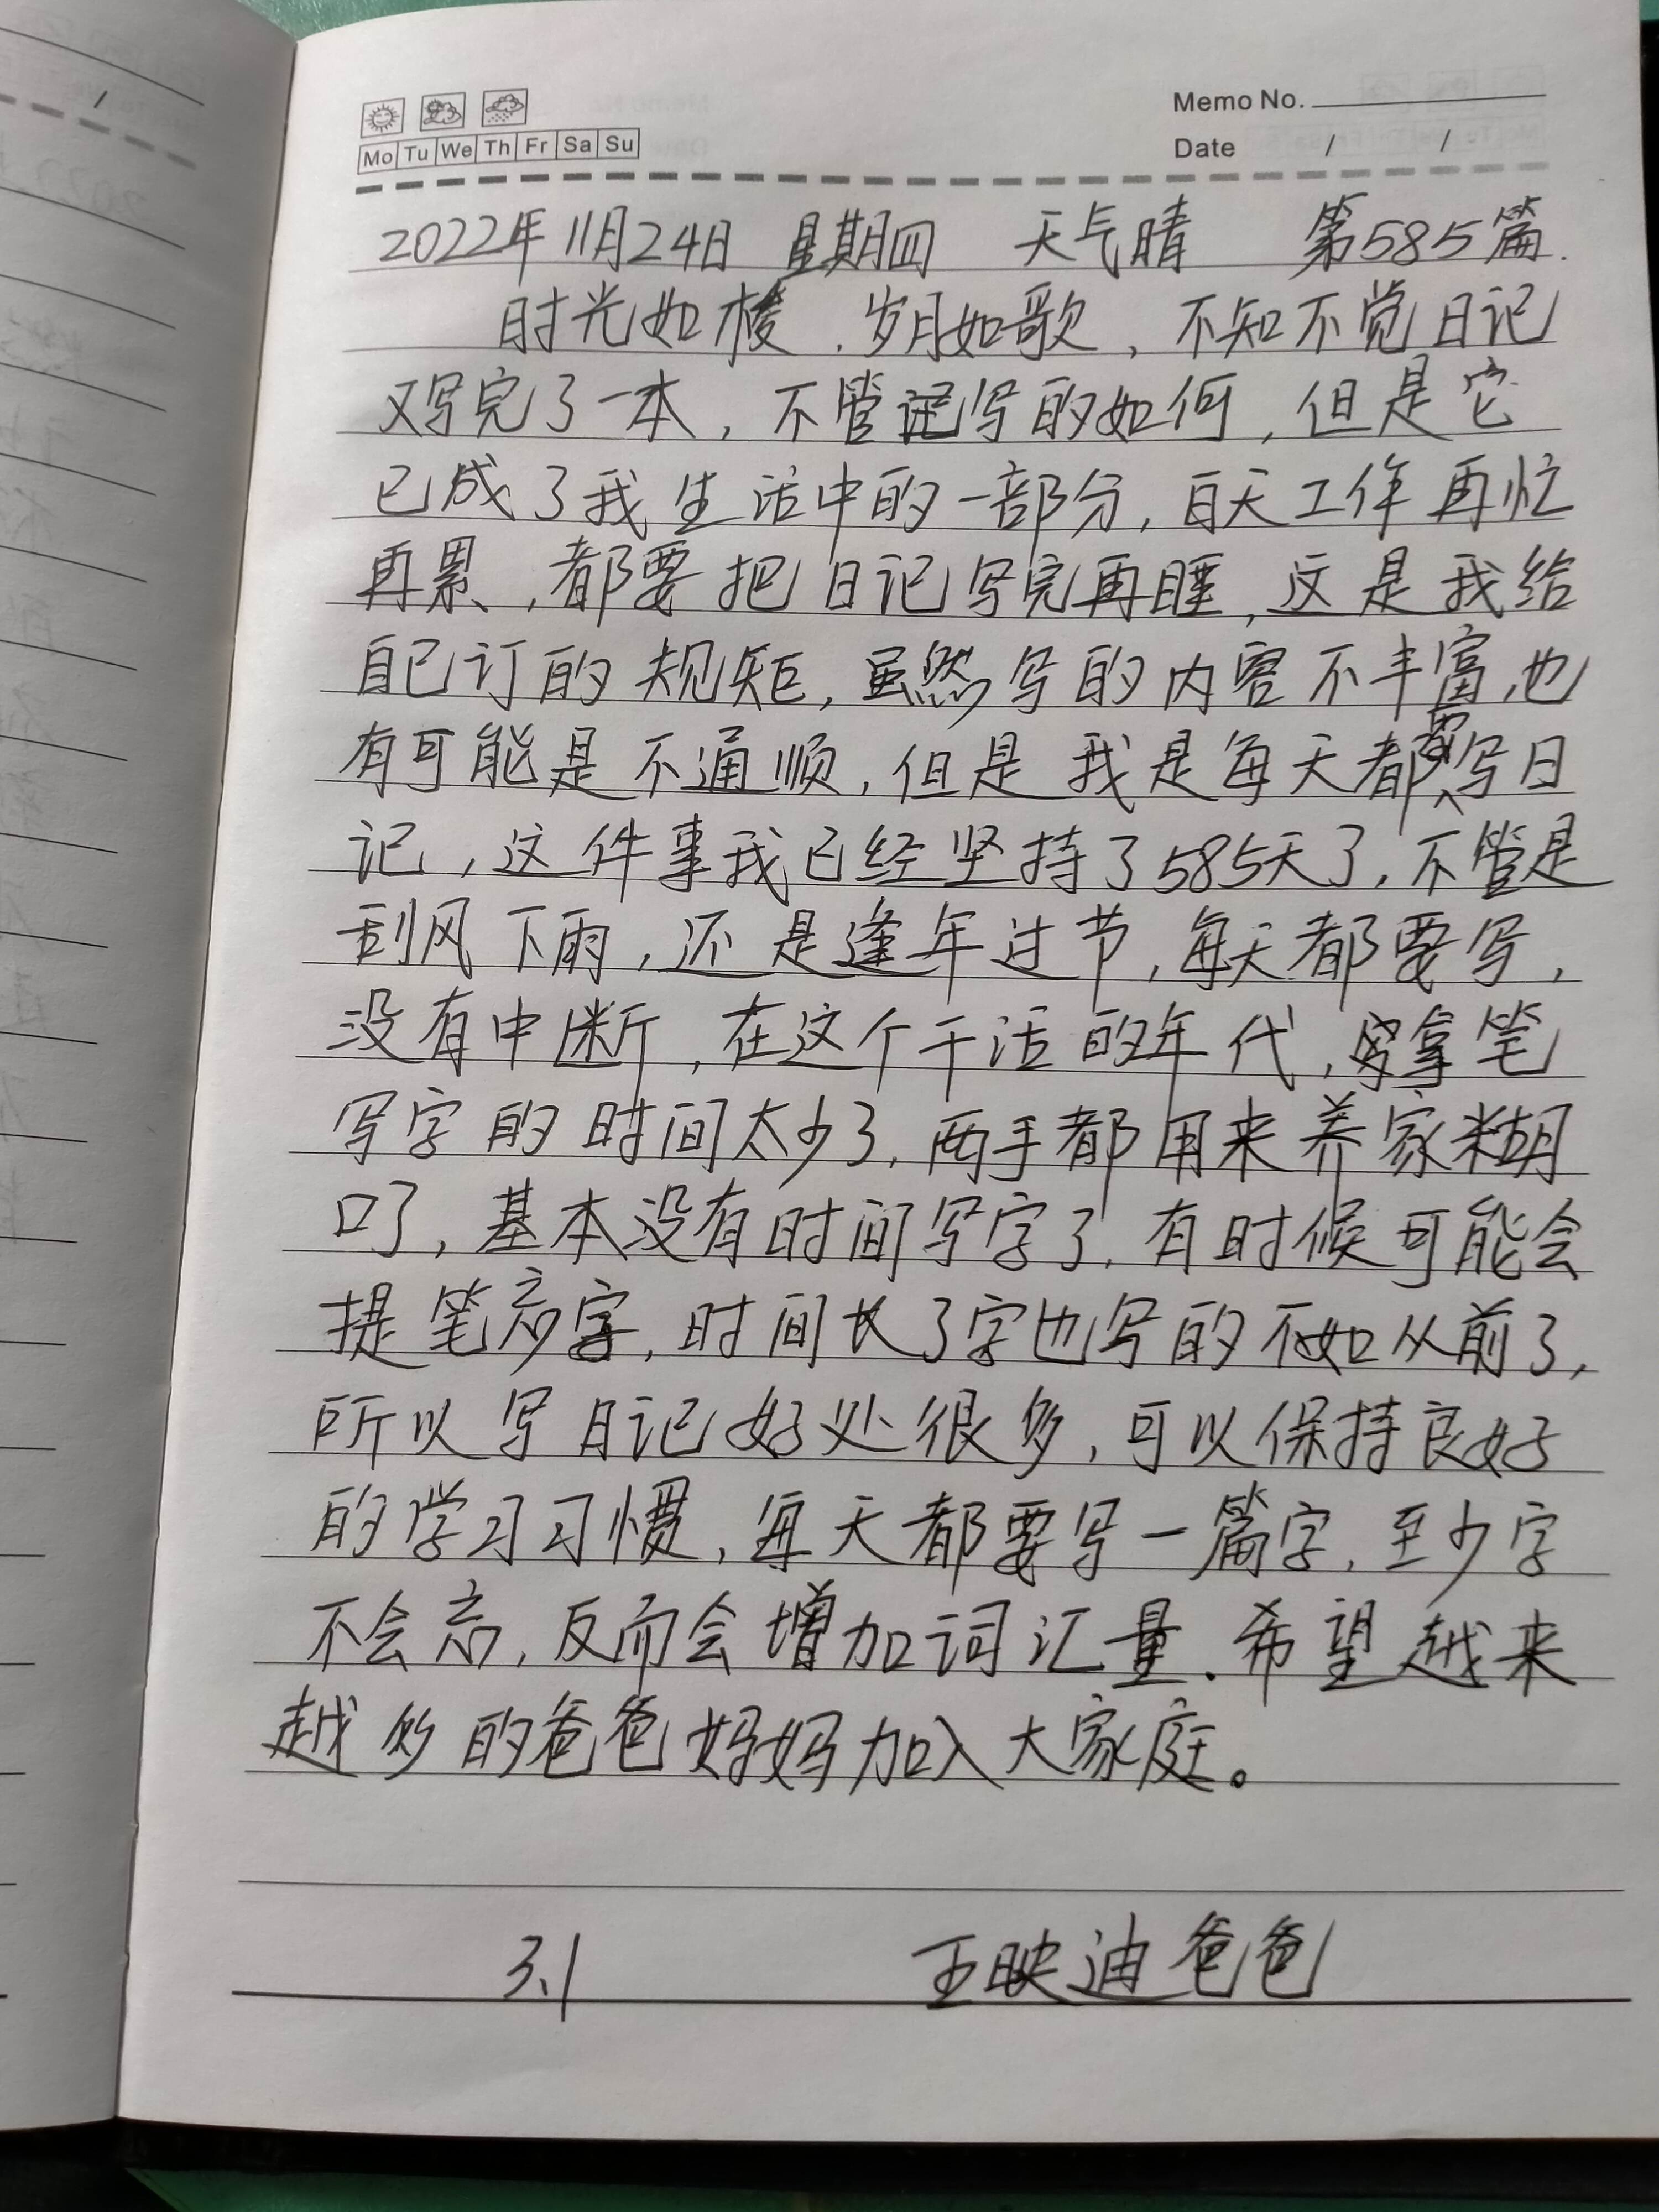 Memo No.
Mo Tu We Th Fr Sa Su
Date / /
2022年11月24日 星期四 天气晴 第585篇.
时光如梭,岁月如歌,不知不觉日记
又写完了一本,不管记写的如何,但是它
已成了我生活中的一部分,白天工作再忙
再累,都要把日记写完再睡,这是我给
自己订的规矩,虽然写的内容不丰富,也
有可能是不通顺,但是我是每天都要写日
记,这件事我已经坚持了585天了,不管是
刮风下雨,还是逢年过节,每天都要写,
没有中断,在这个干活的年代,拿笔
写字的时间太少了,两手都用来养家糊
口了,基本没有时间写字了,有时候可能会
提笔忘字,时间长了字也写的不如从前了,
所以写日记好处很多,可以保持良好
的学习习惯,每天都要写一篇字,至少字
不会忘,反而会增加词汇量.希望越来
越多的爸爸妈妈加入大家庭。
3.1 王映迪爸爸